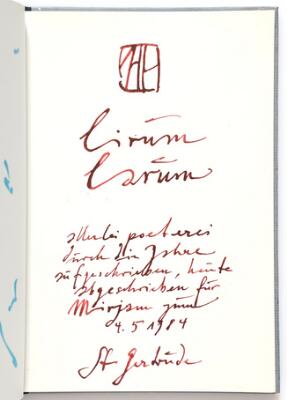 Cirum
Carum
allerlei poeterei
durch die Jahre
aufgeschrieben, heute
abgeschrieben für
Mirjam zum
4.5.1984
St Gertrude